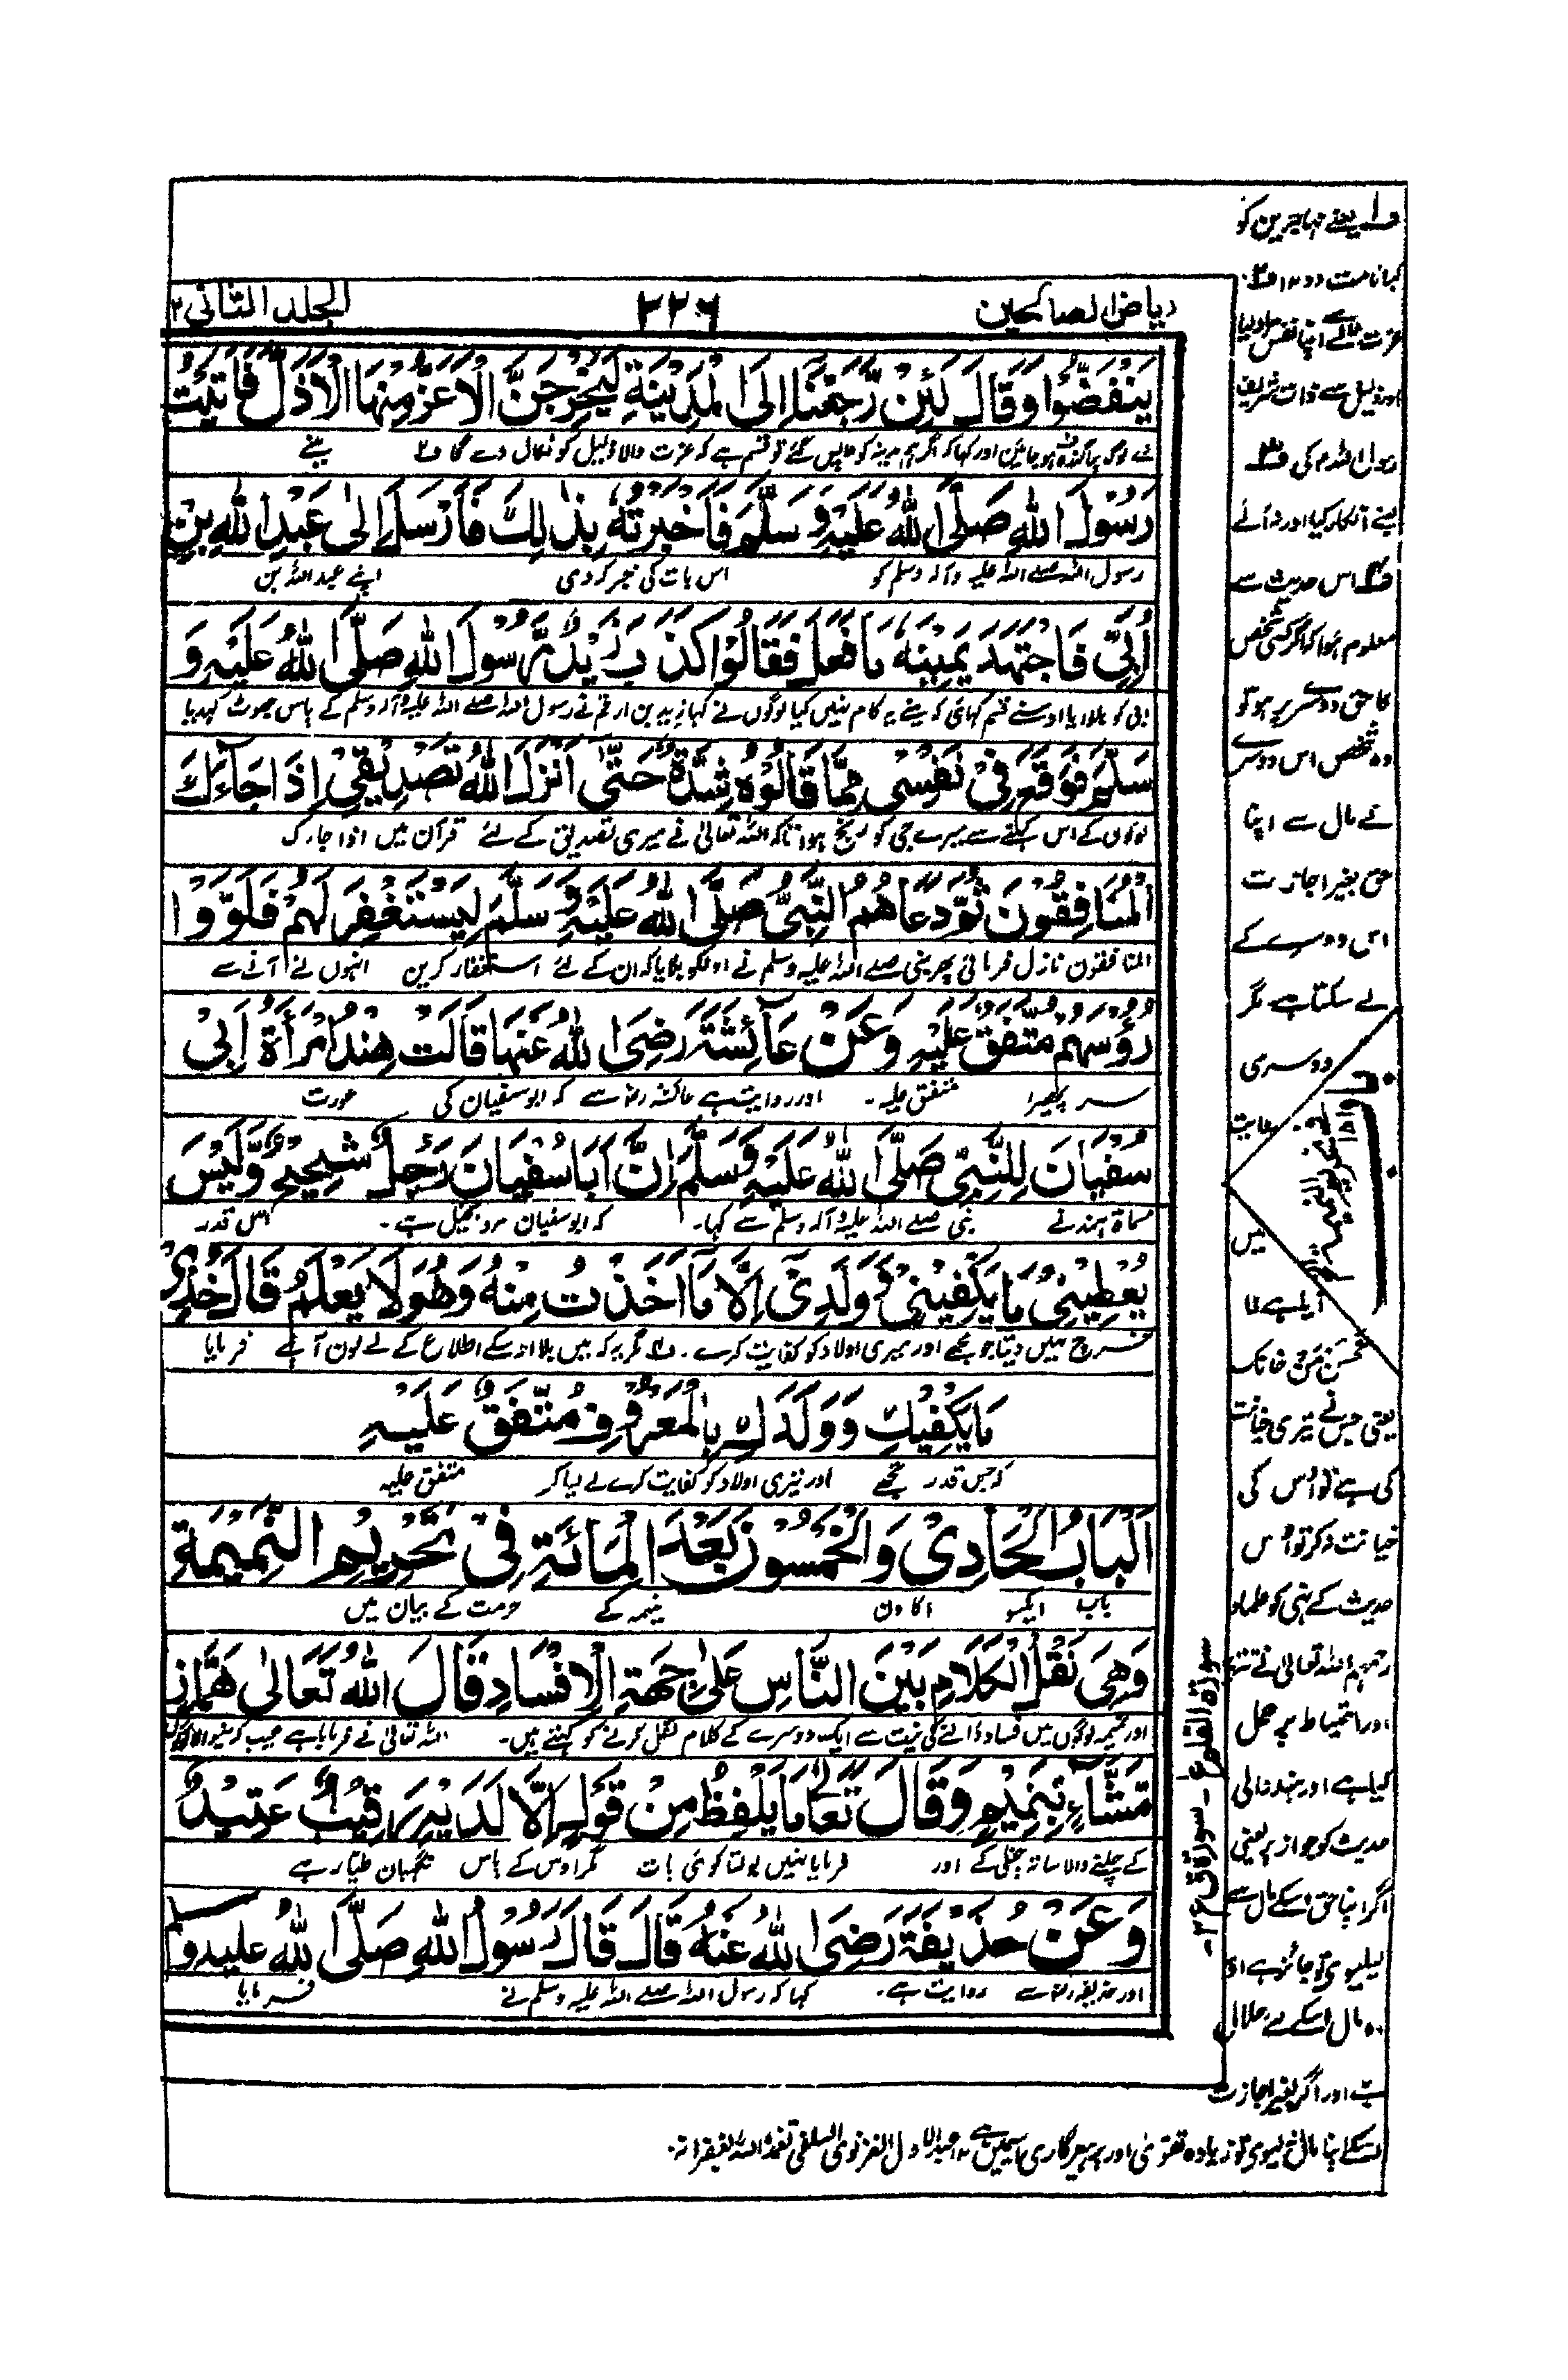 رياض الصالحين
۲۲۶
الجلد الثانی ۲
يَنْفَضُّوْا وَقَالَ لَئِنْ رَّجَعْنَا اِلَى الْمَدِيْنَةِ لَيُخْرِجَنَّ الْاَعَزُّ مِنْهَا الْاَذَلَّ فَاَتَيْتُ
لوگ پراگندہ ہو جائیں اور کہا کہ اگر ہم مدینہ کو واپس گئے تو قسم ہے کہ عزت والا ذلیل کو نکال دے گا ف۲ پینے
رَسُوْلَ اللهِ صَلَّى اللهُ عَلَيْهِ وَسَلَّمَ فَاَخْبَرْتُهُ بِذٰلِكَ فَاَرْسَلَ اِلٰى عَبْدِ اللهِ بْنِ
رسول اللہ صلے اللہ علیہ وآلہ وسلم کو اس بات کی خبر کردی اپنے عبد اللہ بن
اُبَيٍّ فَاجْتَهَدَ يَمِيْنَهُ مَا فَعَلَ فَقَالُوْا كَذَبَ زَيْدٌ رَّسُوْلَ اللهِ صَلَّى اللهُ عَلَيْهِ وَ
ابی کو بلوایا اوسنے قسم کھائی کہ مینے یہ کام نہیں کیا لوگوں نے کہا زید بن ارقم نے رسول اللہ صلے اللہ علیہ وآلہ وسلم کے پاس جھوٹ کہدیا
سَلَّمَ فَوَقَعَ فِيْ نَفْسِيْ مِمَّا قَالُوْهُ شِدَّةٌ حَتّٰى اَنْزَلَ اللهُ تَصْدِيْقِيْ اِذَا جَآءَكَ
لوگوں کے اس کہنے سے میرے جی کو رنج ہوا تا کہ اللہ تعالیٰ نے میری تصدیق کے لئے قرآن میں اذا جاءک
الْمُنَافِقُوْنَ ثُمَّ دَعَاهُمُ النَّبِيُّ صَلَّى اللهُ عَلَيْهِ وَسَلَّمَ لِيَسْتَغْفِرَ لَهُمْ فَلَوَّوْا
المنافقون نازل فرمائی پھر نبی صلے اللہ علیہ وسلم نے اونکو بلایا کہ ان کے لئے استغفار کریں انہوں نے آنے سے
رُءُوْسَهُمْ مُتَّفَقٌ عَلَيْهِ وَعَنْ عَآئِشَةَ رَضِيَ اللهُ عَنْهَا قَالَتْ هِنْدُ امْرَأَةُ اَبِيْ
سر پھیرا متفق علیہ۔ اور روایت ہے عائشہ رضہ سے کہ ابو سفیان کی عورت
سُفْيَانَ لِلنَّبِيِّ صَلَّى اللهُ عَلَيْهِ وَسَلَّمَ اِنَّ اَبَا سُفْيَانَ رَجُلٌ شَحِيْحٌ وَّلَيْسَ
مسماۃ ہند نے نبی صلے اللہ علیہ وآلہ وسلم سے کہا۔ کہ ابو سفیان مرد بخیل ہے۔ اس قدر
يُعْطِيْنِيْ مَا يَكْفِيْنِيْ وَوَلَدِيْ اِلَّا مَا اَخَذْتُ مِنْهُ وَهُوَ لَا يَعْلَمُ قَالَ خُذِيْ
خرچ نہیں دیتا جو مجھے اور میری اولاد کو کفایت کرے۔ مگر یہ کہ میں بلا اوسکے اطلاع کے لے لوں آپ نے فرمایا
مَا يَكْفِيْكِ وَوَلَدَكِ بِالْمَعْرُوْفِ مُتَّفَقٌ عَلَيْهِ
کہ جس قدر تجھے اور تیری اولاد کو کفایت کرے لے لیا کر متفق علیہ
اَلْبَابُ الْحَادِيْ وَالْخَمْسُوْنَ بَعْدَ الْمِائَةِ فِيْ تَحْرِيْمِ النَّمِيْمَةِ
باب ایکسو اکاون نمیمہ کے حرمت کے بیان میں
وَهِيَ نَقْلُ الْكَلَامِ بَيْنَ النَّاسِ عَلٰى جِهَةِ الْاِفْسَادِ قَالَ اللهُ تَعَالٰى هَمَّازٍ
اور نمیمہ لوگوں میں فساد ڈالنے کی نیت سے ایک دوسرے کے کلام نقل کرنے کو کہتے ہیں۔ اللہ تعالیٰ نے فرمایا ہے عیب کرنیوالا
مَّشَّآءٍ بِنَمِيْمٍ وَقَالَ تَعَالٰى مَا يَلْفِظُ مِنْ قَوْلٍ اِلَّا لَدَيْهِ رَقِيْبٌ عَتِيْدٌ
کے چلنے والا ساتہ چغلی کے اور فرمایا نہیں بولتا کوئی بات مگر اوس کے پاس نگہبان طیار ہے
وَعَنْ حُذَيْفَةَ رَضِيَ اللهُ عَنْهُ قَالَ قَالَ رَسُوْلُ اللهِ صَلَّى اللهُ عَلَيْهِ وَ
اور حذیفہ رضہ سے روایت ہے۔ کہا کہ رسول اللہ صلے اللہ علیہ وسلم نے فرمایا
سورة القلم ع۱ - سورة ق ع۲ -
ف۱ یعنے مہاجرین کو
کہانا مت دو ۱۲ ف۲
عزت والے سے اپنا نفس مراد لیا
اور ذلیل سے ذات شریف
رسول اللہ کی ف۳
یعنے انکار کیا اور نہ آئے
ف۴ اس حدیث سے
معلوم ہوا کہ اگر کسی شخص
کا حق دوسرے پر ہو تو
وہ شخص اس دوسرے
کے مال سے اپنا
حق بغیر اجازت
اس دوسرے کے
لے سکتا ہے مگر
دوسری
میں
آیا ہے لا
تخن من خانک
یعنی جس نے تیری خیانت
کی ہے تو اُس کی
خیانت نہ کر تو اس
حدیث کے نہی کو علماء
رحمہم اللہ تعالیٰ نے تنزہ
اور احتیاط پر حمل
کیا ہے اور ہند والی
حدیث کو جواز پر یعنی
اگر اپنا حق اسکے مال سے
لیلیوی تو جائز ہے اور
وہ مال اسکے لئے حلال
ہے اور اگر بغیر اجازت
اسکے اپنا مال نہ لیوی تو زیادہ تقویٰ اور پرہیزگاری اسمیں ہے ۱۲ عبد الاول الغزنوی السلفی تغمدہ اللہ بغفرانہ۔